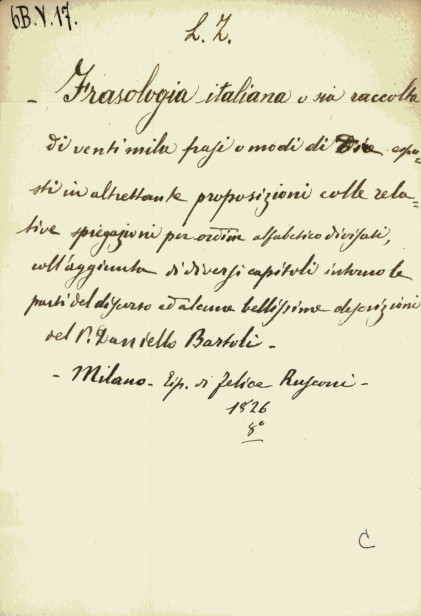 6B.V.17.
L. Z.
- Frasologia italiana o sia raccolta
di venti mila frasi o modi di Dire espo=
sti in altrettante proposizioni colle rela=
tive spiegazioni per ordine alfabetico divisati,
coll'aggiunta di diversi capitoli intorno le
parti del discorso ed alcune bellissime descrizioni
del P. Daniello Bartoli -
- Milano - Tip. di Felice Rusconi -
1826
8°
C